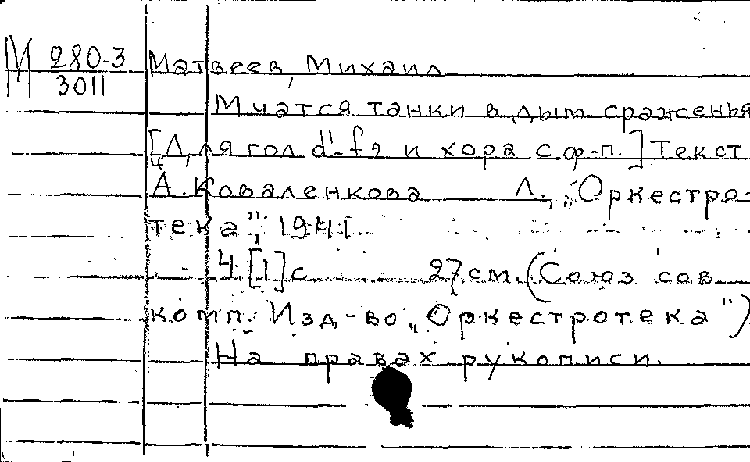 М 280-3 Матвеев, Михаил
3011
Мчатся танки в дым сраженья
[Для гол. d'-f2 и хора с ф-п.] Текст
А. Коваленкова Л., „Оркестро-
тека", 1941
4 [1] с 27 см. (Союз сов
комп. Изд-во „Оркестротека")
На правах рукописи.